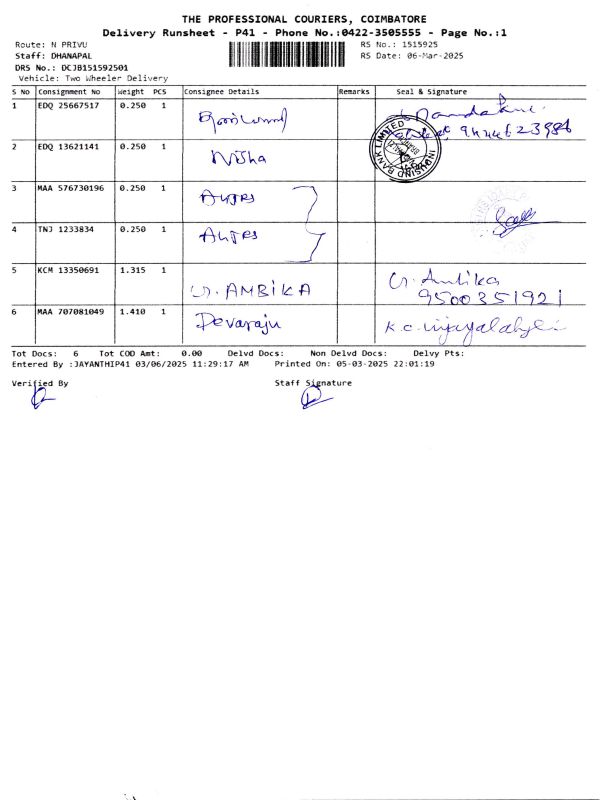 THE PROFESSIONAL COURIERS, COIMBATORE
Delivery Runsheet - P41 - Phone No.:0422-3505555 - Page No.:1
Route: N PRIVU RS No.: 1515925
Staff: DHANAPAL RS Date: 06-Mar-2025
DRS No.: DCJB151592501
Vehicle: Two Wheeler Delivery
S No Consignment No Weight PCS Consignee Details Remarks Seal & Signature
1 EDQ 25667517 0.250 1
2 EDQ 13621141 0.250 1 Nisha
INDUSIND BANK LIMITED
3 MAA 576730196 0.250 1
4 TNJ 1233834 0.250 1
5 KCM 13350691 1.315 1 G. AMBIKA G. Ambika
9500351921
6 MAA 707081049 1.410 1 Devaraju K.C. Vijayalakshmi
Tot Docs: 6 Tot COD Amt: 0.00 Delvd Docs: Non Delvd Docs: Delvy Pts:
Entered By :JAYANTHIP41 03/06/2025 11:29:17 AM Printed On: 05-03-2025 22:01:19
Verified By Staff Signature